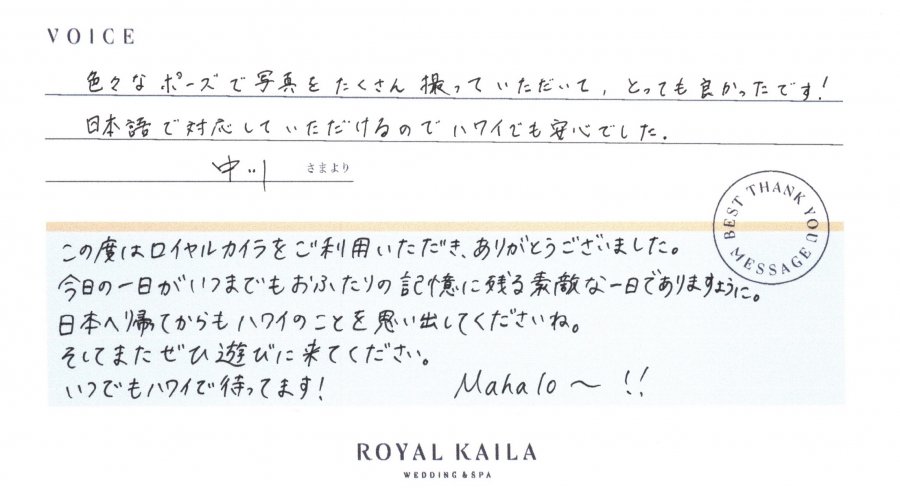 VOICE
色々なポーズで写真をたくさん撮っていただいて、とっても良かったです!
日本語で対応していただけるのでハワイでも安心でした。
中川 さまより
BEST THANK YOU MESSAGE
この度はロイヤルカイラをご利用いただき、ありがとうございました。
今日の一日がいつまでもおふたりの記憶に残る素敵な一日でありますように。
日本へ帰てからもハワイのことを思い出してくださいね。
そしてまたぜひ遊びに来てください。
いつでもハワイで待ってます!
Mahalo〜!!
ROYAL KAILA
WEDDING & SPA